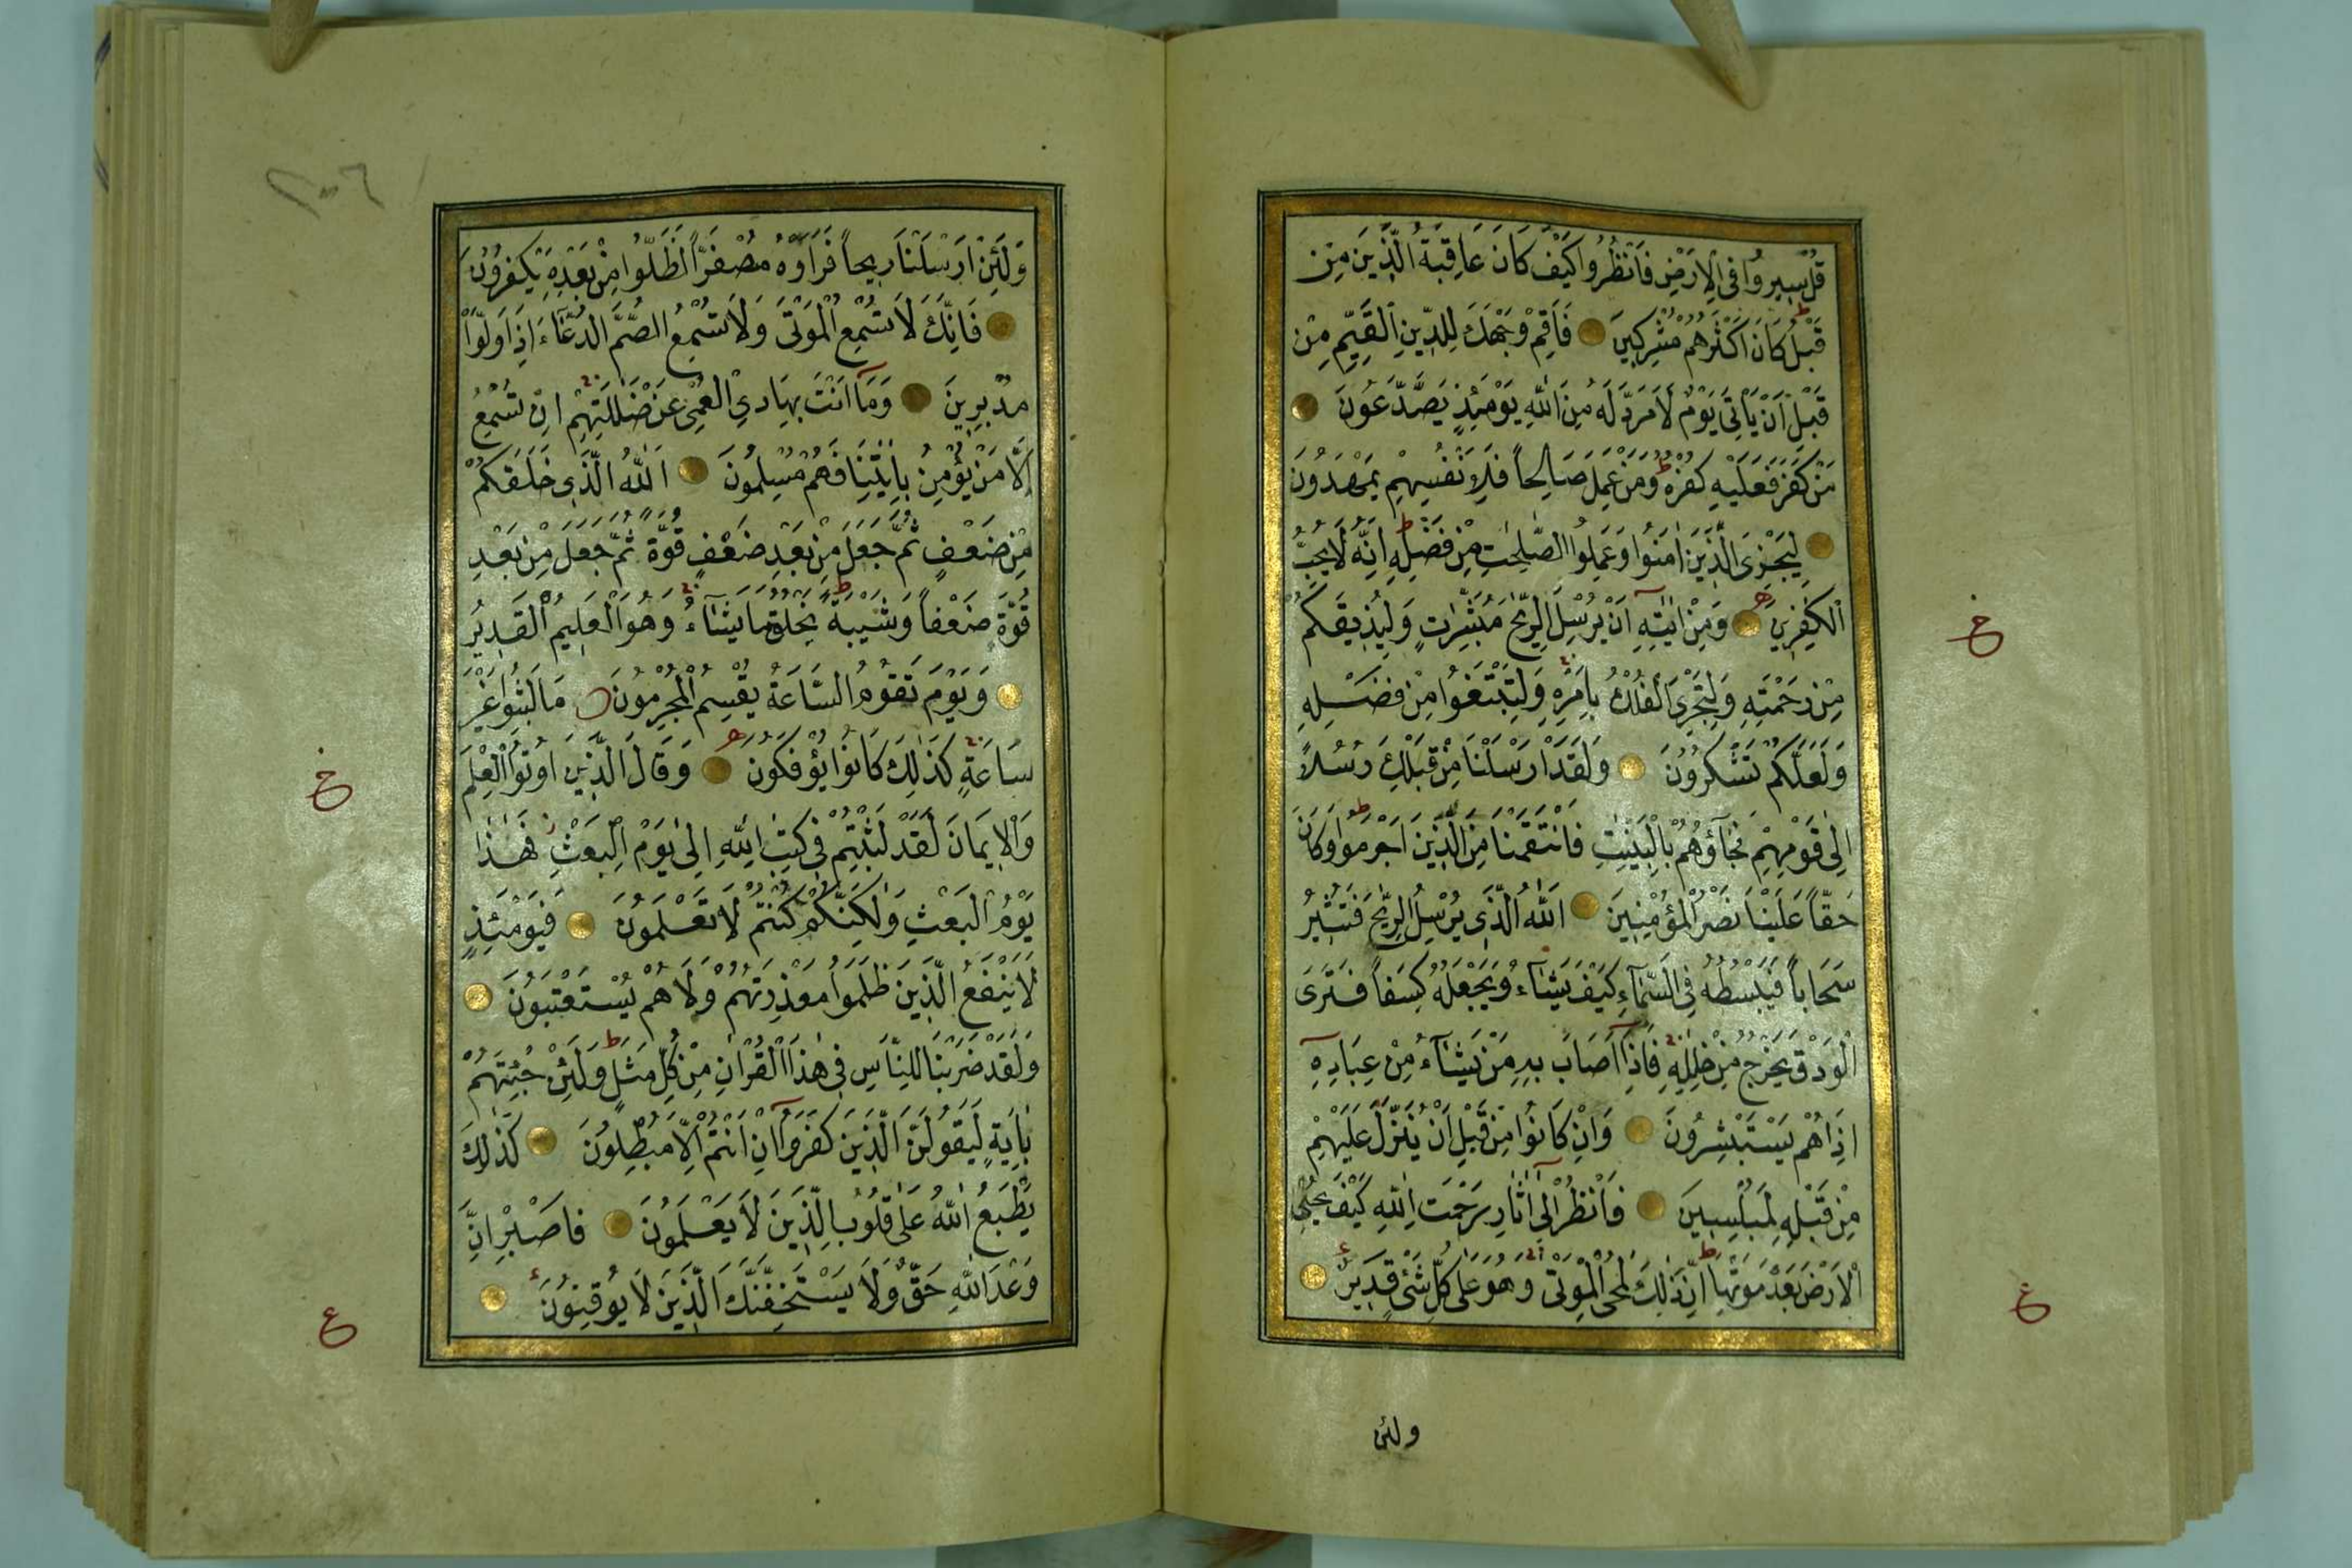 قُلْ سِيرُوا فِى الْاَرْضِ فَانْظُرُوا كَيْفَ كَانَ عَاقِبَةُ الَّذِينَ مِنْ
قَبْلُ كَانَ اَكْثَرُهُمْ مُشْرِكِينَ فَاَقِمْ وَجْهَكَ لِلدِّينِ الْقَيِّمِ مِنْ
قَبْلِ اَنْ يَأْتِىَ يَوْمٌ لَا مَرَدَّ لَهُ مِنَ اللّٰهِ يَوْمَئِذٍ يَصَّدَّعُونَ
مَنْ كَفَرَ فَعَلَيْهِ كُفْرُهُ وَمَنْ عَمِلَ صَالِحاً فَلِاَنْفُسِهِمْ يَمْهَدُونَ
لِيَجْزِىَ الَّذِينَ اٰمَنُوا وَعَمِلُوا الصّٰلِحٰتِ مِنْ فَضْلِهِ اِنَّهُ لَا يُحِبُّ
الْكٰفِرِينَ وَمِنْ اٰيٰتِهِ اَنْ يُرْسِلَ الرِّيٰحَ مُبَشِّرٰتٍ وَلِيُذِيقَكُمْ
مِنْ رَحْمَتِهِ وَلِتَجْرِىَ الْفُلْكُ بِاَمْرِهِ وَلِتَبْتَغُوا مِنْ فَضْلِهِ
وَلَعَلَّكُمْ تَشْكُرُونَ وَلَقَدْ اَرْسَلْنَا مِنْ قَبْلِكَ رُسُلاً
اِلٰى قَوْمِهِمْ فَجَآؤُهُمْ بِالْبَيِّنٰتِ فَانْتَقَمْنَا مِنَ الَّذِينَ اَجْرَمُوا وَكَانَ
حَقّاً عَلَيْنَا نَصْرُ الْمُؤْمِنِينَ اَللّٰهُ الَّذِى يُرْسِلُ الرِّيٰحَ فَتُثِيرُ
سَحَاباً فَيَبْسُطُهُ فِى السَّمَآءِ كَيْفَ يَشَآءُ وَيَجْعَلُهُ كِسَفاً فَتَرَى
الْوَدْقَ يَخْرُجُ مِنْ خِلٰلِهِ فَاِذَا اَصَابَ بِهِ مَنْ يَشَآءُ مِنْ عِبَادِهِ
اِذَا هُمْ يَسْتَبْشِرُونَ وَاِنْ كَانُوا مِنْ قَبْلِ اَنْ يُنَزَّلَ عَلَيْهِمْ
مِنْ قَبْلِهِ لَمُبْلِسِينَ فَانْظُرْ اِلٰى اٰثَارِ رَحْمَتِ اللّٰهِ كَيْفَ يُحْىِ
الْاَرْضَ بَعْدَ مَوْتِهَا اِنَّ ذٰلِكَ لَمُحْىِ الْمَوْتٰى وَهُوَ عَلٰى كُلِّ شَىْءٍ قَدِيرٌ
ولئن
٢٠٠٦
وَلَئِنْ اَرْسَلْنَا رِيحاً فَرَاَوْهُ مُصْفَرّاً لَظَلُّوا مِنْ بَعْدِهِ يَكْفُرُونَ
فَاِنَّكَ لَا تُسْمِعُ الْمَوْتٰى وَلَا تُسْمِعُ الصُّمَّ الدُّعَآءَ اِذَا وَلَّوْا
مُدْبِرِينَ وَمَآ اَنْتَ بِهَادِى الْعُمْىِ عَنْ ضَلٰلَتِهِمْ اِنْ تُسْمِعُ
اِلَّا مَنْ يُؤْمِنُ بِاٰيٰتِنَا فَهُمْ مُسْلِمُونَ اَللّٰهُ الَّذِى خَلَقَكُمْ
مِنْ ضَعْفٍ ثُمَّ جَعَلَ مِنْ بَعْدِ ضَعْفٍ قُوَّةً ثُمَّ جَعَلَ مِنْ بَعْدِ
قُوَّةٍ ضَعْفاً وَشَيْبَةً يَخْلُقُ مَا يَشَآءُ وَهُوَ الْعَلِيمُ الْقَدِيرُ
وَيَوْمَ تَقُومُ السَّاعَةُ يُقْسِمُ الْمُجْرِمُونَ مَا لَبِثُوا غَيْرَ
سَاعَةٍ كَذٰلِكَ كَانُوا يُؤْفَكُونَ وَقَالَ الَّذِينَ اُوتُوا الْعِلْمَ
وَالْاِيمَانَ لَقَدْ لَبِثْتُمْ فِى كِتٰبِ اللّٰهِ اِلٰى يَوْمِ الْبَعْثِ فَهٰذَا
يَوْمُ الْبَعْثِ وَلٰكِنَّكُمْ كُنْتُمْ لَا تَعْلَمُونَ فَيَوْمَئِذٍ
لَا يَنْفَعُ الَّذِينَ ظَلَمُوا مَعْذِرَتُهُمْ وَلَا هُمْ يُسْتَعْتَبُونَ
وَلَقَدْ ضَرَبْنَا لِلنَّاسِ فِى هٰذَا الْقُرْاٰنِ مِنْ كُلِّ مَثَلٍ وَلَئِنْ جِئْتَهُمْ
بِاٰيَةٍ لَيَقُولَنَّ الَّذِينَ كَفَرُوا اِنْ اَنْتُمْ اِلَّا مُبْطِلُونَ كَذٰلِكَ
يَطْبَعُ اللّٰهُ عَلٰى قُلُوبِ الَّذِينَ لَا يَعْلَمُونَ فَاصْبِرْ اِنَّ
وَعْدَ اللّٰهِ حَقٌّ وَلَا يَسْتَخِفَّنَّكَ الَّذِينَ لَا يُوقِنُونَ